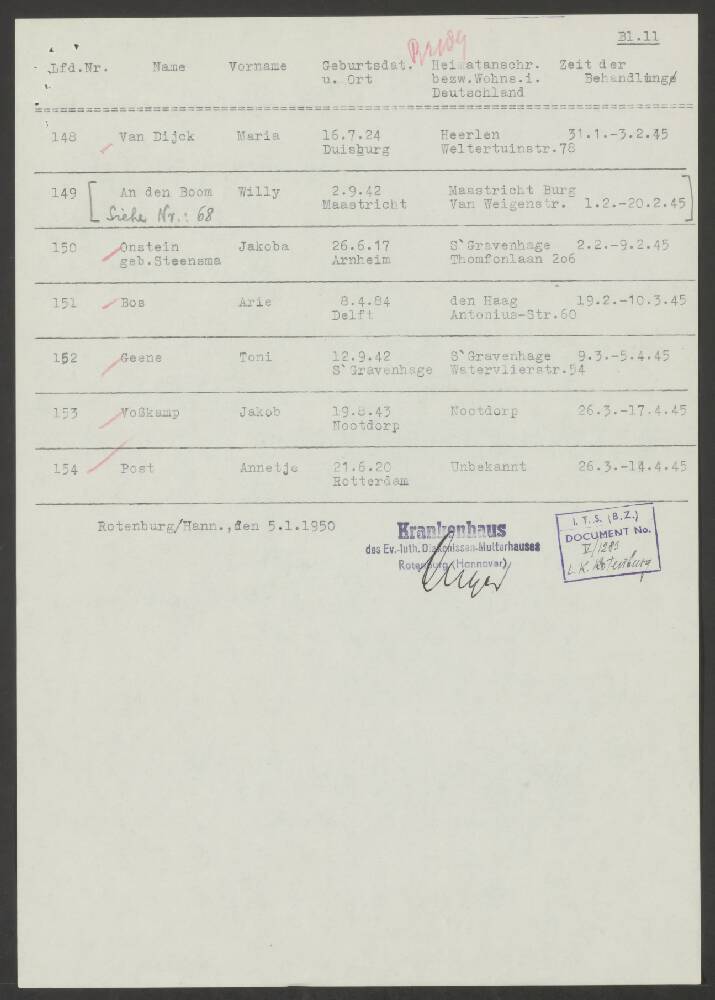 Bl.11
Lfd.Nr. Name Vorname Geburtsdat. Heimatanschr. Zeit der
u. Ort bezw.Wohns.i. Behandlung
Deutschland
148 Van Dijck Maria 16.7.24 Heerlen 31.1.-3.2.45
Duisburg Weltertuinstr.78
149 An den Boom Willy 2.9.42 Maastricht Burg
Maastricht Van Weigenstr. 1.2.-20.2.45
Siehe Nr.: 68
150 Onstein Jakoba 26.6.17 S`Gravenhage 2.2.-9.2.45
geb.Steensma Arnheim Thomfonlaan 2o6
151 Bos Arie 8.4.84 den Haag 19.2.-10.3.45
Delft Antonius-Str.60
152 Geene Toni 12.9.42 S`Gravenhage 9.3.-5.4.45
S`Gravenhage Watervlierstr.54
153 Voßkamp Jakob 19.8.43 Nootdorp 26.3.-17.4.45
Nootdorp
154 Post Annetje 21.6.20 Unbekannt 26.3.-14.4.45
Rotterdam
Rotenburg/Hann.,den 5.1.1950
Krankenhaus
des Ev.-luth. Diakonissen-Mutterhauses
Rotenburg (Hannover)
I.T.S. (B.Z.)
DOCUMENT No.
L.K. Rotenburg